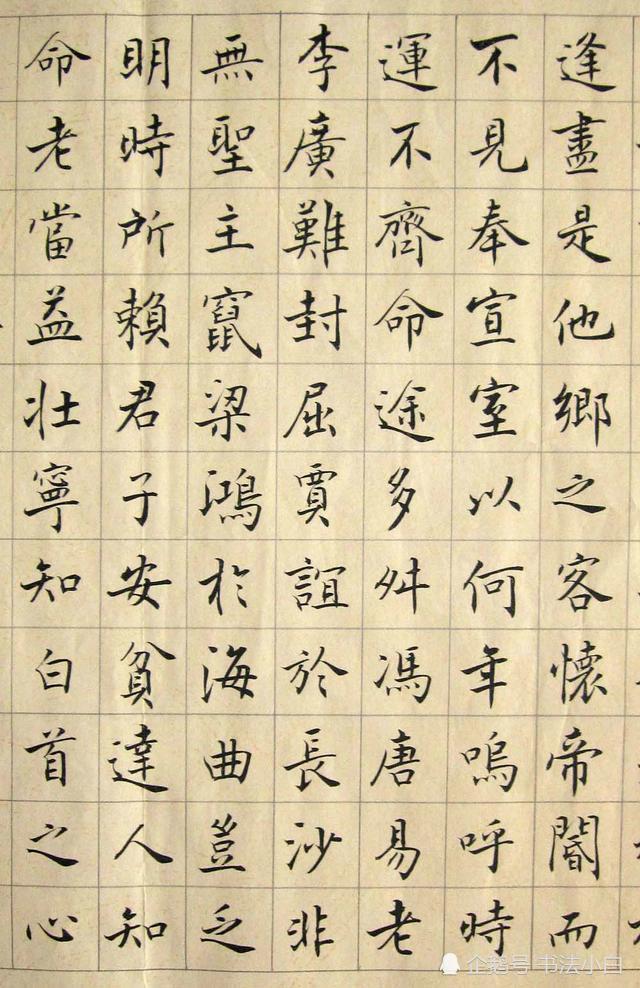 逢盡是他鄉之客懷帝閽而
不見奉宣室以何年嗚呼時
運不齊命途多舛馮唐易老
李廣難封屈賈誼於長沙非
無聖主竄梁鴻於海曲豈乏
明時所賴君子安貧達人知
命老當益壯寧知白首之心
企鹅号 书法小白